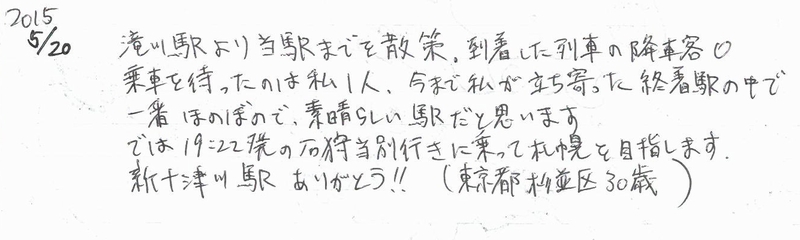 2015
5/20
滝川駅より当駅までを散策。到着した列車の降車客0
乗車を待ったのは私1人、今まで私が立ち寄った終着駅の中で
一番ほのぼので、素晴らしい駅だと思います
では19:22発の石狩当別行きに乗って札幌を目指します.
新十津川駅 ありがとう!! (東京都杉並区30歳)